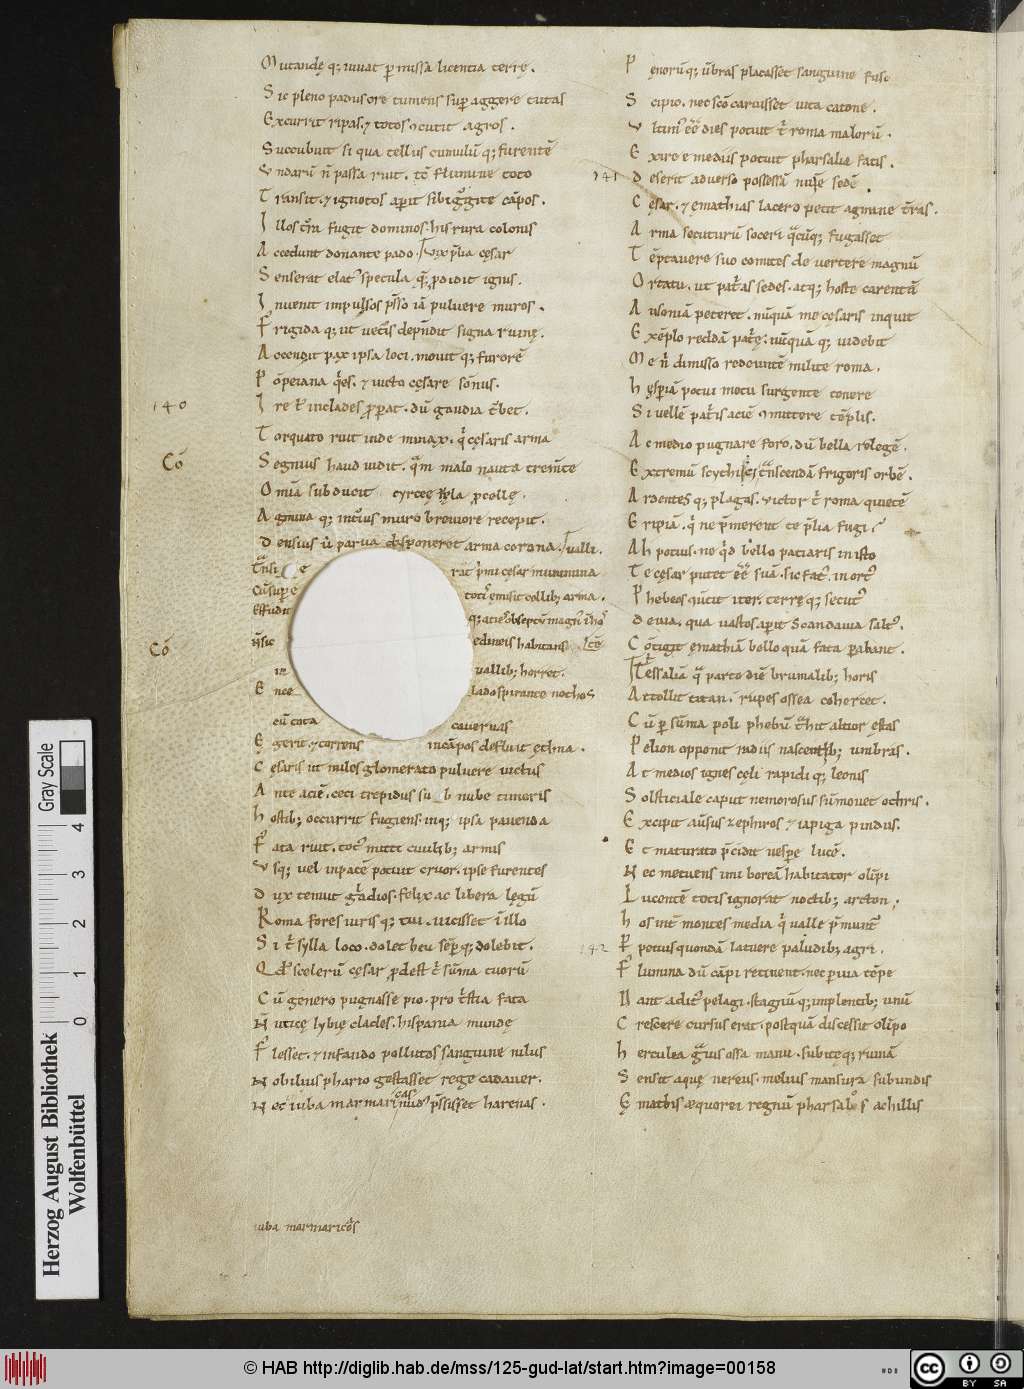 Mutandę q; iuuat p̄missa licentia terrę.
Sic pleno padus ore tumens sup aggere tutas
Excurrit ripas. ⁊ totos ɔcutit agros.
Succubuit si qua tellus cumulū q; furentē
Vndarū n̄ passa ruit. tc̄ flumine toto
Transit. ⁊ ignotos apit sibi gͦgite cāpos.
Illos tr̄a fugit dominos. his rura colonis
Accedunt donante pado. Vix p̄lia cęsar
Senserat elatꝰ specula q̄ ꝓdidit ignis.
Inuenit impulsos p̄sso iā puluere muros.
Frigida q; ut uetis dep̄ndit signa ruinę.
Accendit pax ipsa loci. mouit q; furorē
Pōpeiana q̇es. ⁊ uicto cęsare sōnus.
140
Ire ł in clades ꝓpat. dū gaudia t̄bet.
Torquato ruit inde minax. q̇ cęsaris arma
Cō
Segnius haud uidit. q̄m malo nauta trem̄te
Omīa subducit cyrceę uela ꝓcellę.
Agmina q; int̄ius muro breuiore recepit.
Densius ut̄ parua disponeret arma corona. ualli.
rat p̄mi cęsar munimina
toti emisit collib; arma.
Effudit
edineis habitans
Cō
uallib; horret.
E nce lado spirante nothos
cauernas
Egerit. ⁊ torrens in cāpos defluit ęthna.
Cęsaris ut miles glomerato puluere uictus
Ante aciē. ceci trepidus su b nube timoris
Hostib; occurrit fugiens. inq; ipsa pauenda
Fata ruit. totꝰ mitti ciuilib; armis
Vsq; uel in pacē potuit cruor. ipse furentes
Dux tenuit gladios. felix ac libera lęgū
Roma fores iuris q; tui. uicisset ī illo
Si t̄ sylla loco. dolet heu sēp q; dolebit.
Qd̄ scelerū cęsar ꝓdest t̄ sūma tuorū
Cū genero pugnasse pio. pro t̄stia fata
N uticę lybię clades. hispania mundę
Flesset. ⁊ infando pollutos sanguine nilus
Nobilius phario gestasset rege cadauer.
Nec iuba marmaricas nudꝰ p̄ssisset harenas.
iuba marmaricas
Pęnorū q; ūbras placasset sanguine fuso
Scipio. nec scō caruisset uita catone.
Vltimꝰ eē dies potuit t̄ roma malorū.
Exire e mediis potuit pharsalia fatis.
141
Deserit aduerso possessā numine sedē.
Cęsar. ⁊ ęmathias lacero petit agmine t̄ras.
Arma secuturū soceri q̄cūq; fugasset
Tēptauere suo comites deuertere magnū
Ortatu. ut pat̄as sedes. atq; hoste carentē
Ausoniā peteret. nūquā me cęsaris inquit
Exēplo reddā pat̄ę. nūquā q; uidebit
Me n̄ dimisso redeuntē milite roma.
Hęsperiā potui motu surgente tenere
Si uellē pat̄is aciē ɔmittere tēplis.
Ac medio pugnare foro. dū bella relegē.
Extremū scythici t̄nscendā frigoris orbē.
Ardentes q; plagas. uictor t̄ roma quietē
Eripiā. q̇ ne p̄merent te p̄lia fugi?
Ah potius. ne q̇d bello patiaris in isto
Te cęsar putet eē suā. sic fatꝰ. in ortꝰ
Phebeos q̄uertit iter. terrę q; secutꝰ
Deuia. qua uastos apit scandauia saltꝰ.
Cōtigit ęmathiā bello quā fata parabant.
Tessaliā q̄ parte diē brumalib; horis
Attollit titan. rupes ossea cohercet.
Cū p sūma poli phebū t̄hit altior ęstas
Pelion opponit radiis nascentib; umbras.
At medios ignes cęli rapidi q; leonis
Solsticiale caput nemorosus sūmouet othris.
Excipit aūsus zephiros ⁊ iapiga pindus.
Et maturato p̄cidit uespe lucē.
Nec metuens imi boreā habitator olīpi
Lucentē totis ignorat noctib; arcton.
Hos int̄ montes media q̇ ualle p̄muntꝰ
142
Ppetuus quondā latuere paludib; agri.
Flumina dū cāpi retinent. nec puia tēpe
Dant aditꝰ pelagi. stagnū q; implentib; unū
Crescere cursus erat. postquā discessit olīpo
Herculea ḡuis ossa manu. subitę q; ruinā
Sensit aquę nereus. melius mansura sub undis
Ęmathis æquorei regnū pharsalos achillis
Herzog August Bibliothek
Wolfenbüttel
0 1 2 3 4
Gray Scale
© HAB http://diglib.hab.de/mss/125-gud-lat/start.htm?image=00158
cc BY SA